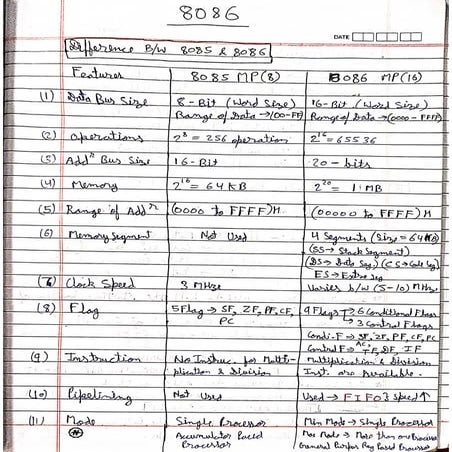 8086
DATE
Difference B/W 8085 & 8086
Features 8085 MP(8) 8086 MP(16)
(1) Data Bus Size 8-Bit (Word Size) 16-Bit (Word Size)
Range of Data → (00-FF) Range of Data → (0000-FFFF)
(2) Operations 2⁸ = 256 operation 2¹⁶ = 65536
(3) Addʳ Bus Size 16-Bit 20-bits
(4) Memory 2¹⁶ = 64KB 2²⁰ = 1 MB
(5) Range of Addʳ (0000 to FFFF)H (00000 to FFFFF)H
(6) Memory Segment Not Used 4 Segments (Size = 64KB)
(SS → Stack Segment)
(DS → Data Seg) (CS → Code Seg)
ES → Extra Seg
Clock Speed 3 MHz Varies b/w (5-10) MHz
(8) Flag 5 Flag → SF, ZF, PF, CF, 9 Flags → 6 Conditional Flags
→ 3 Control Flags
Condi.F → SF, ZF, PF, CF,
AC,
Control F → TF, DF, IF
(9) Instruction No Instruc. for Multi- Multiplication & Division
plication & Division Inst. are Available.
(10) Pipelining Not Used Used → FIFO speed ↑
(11) Mode Single Processor Min Mode → Single Processor
Accumulator Based Max Mode → More than one Processor
Processor General Purpos Reg Based Processor